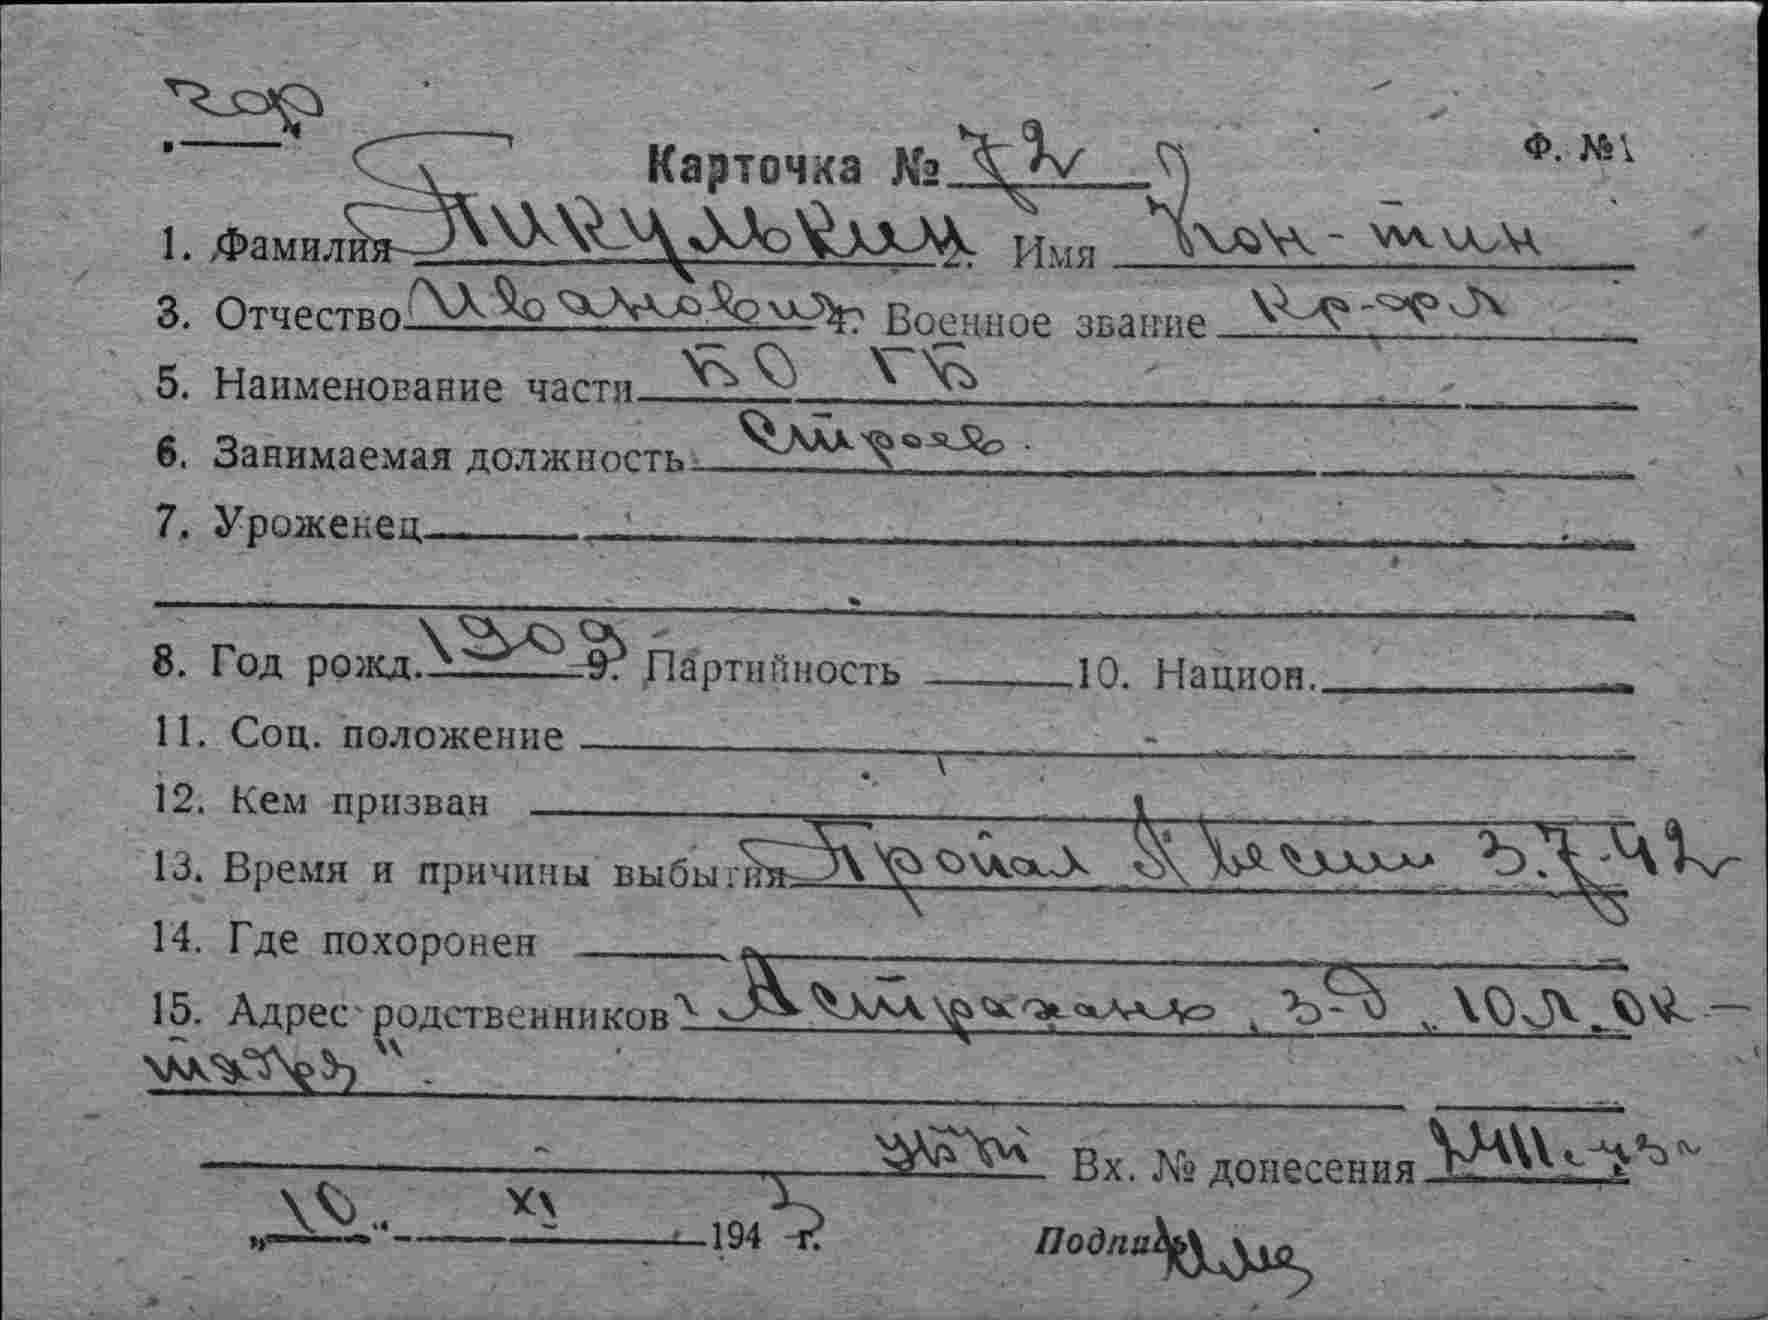 Карточка № 72 Ф. №1
1. Фамилия Пикулькин 2. Имя Кон-тин
3. Отчество Иванович 4. Военное звание Кр-арм
5. Наименование части БО ГБ
6. Занимаемая должность Строев.
7. Уроженец
8. Год рожд. 1909 9. Партийность 10. Национ.
11. Соц. положение
12. Кем призван
13. Время и причины выбытия Пропал без вести 3.7.42
14. Где похоронен
15. Адрес родственников г. Астрахань, з-д „10 л. Ок-
тября".
Вх. № донесения
„10" XI 1943 г. Подпись